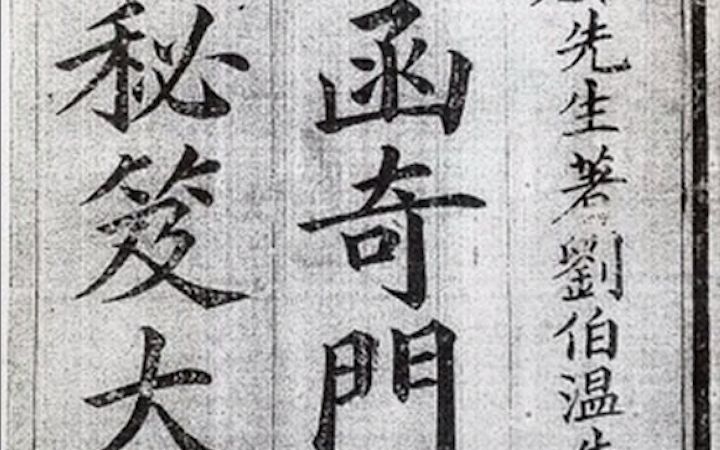 先生著劉伯温先
函奇門
秘笈大